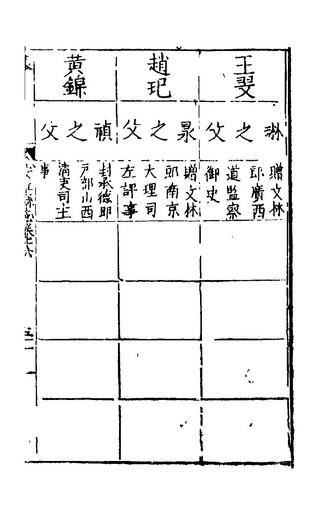 王旻
淋之父
贈文林
郎廣西
道監察
御史
趙玘
㫤之父
贈文林
郎南京
大理司
左評事
黄錦
禎之父
封承德郎
戸部山西
清吏司主
事